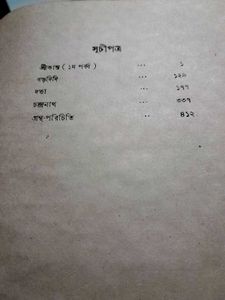 সূচীপত্র
শ্রীকান্ত ( ১ম পর্ব্ব ) ... ১
বড়দিদি ... ১২৯
দত্তা ... ১৭৭
চন্দ্রনাথ ... ৩৩৭
গ্রন্থ-পরিচিতি ... ৪১২